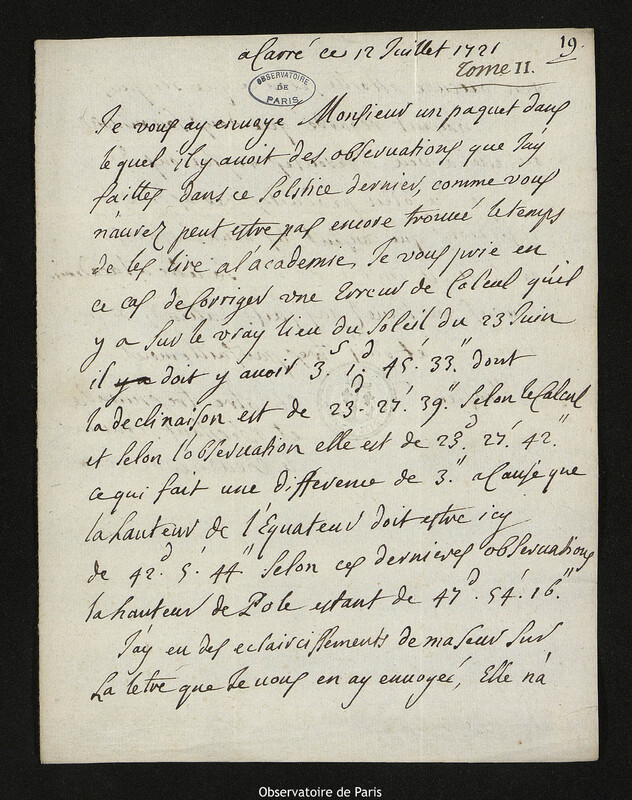 a Carré ce 12 Juillet 1721
19.
Tome II.
OBSERVATOIRE
DE
PARIS
Je vous ay envoye Monsieur un paquet dans
lequel il y avoit des observations que J'ay
faittes dans ce Solstice dernier, comme vous
n'aurez peut estre pas encore trouvé le temps
de les lire a l'academie, Je vous prie en
ce cas de Corriger une Erreur de Calcul qu'il
y a sur le vray lieu du Soleil du 23 Juin
il y a doit y avoir 3.s 1.d 45.' 33." dont
la declinaison est de 23.d 27.' 39." selon le Calcul
et selon l'observation elle est de 23.d 27.' 42."
ce qui fait une difference de 3." a Cause que
la hauteur de l'Equateur doit estre icy
de 42.d 5.' 44." selon ces dernieres observations
la hauteur de Pole estant de 47.d 54.' 16."
J'ay eu des eclaircissements de ma seur sur
La letre que Je vous en ay envoyée, Elle n'a
Observatoire de Paris